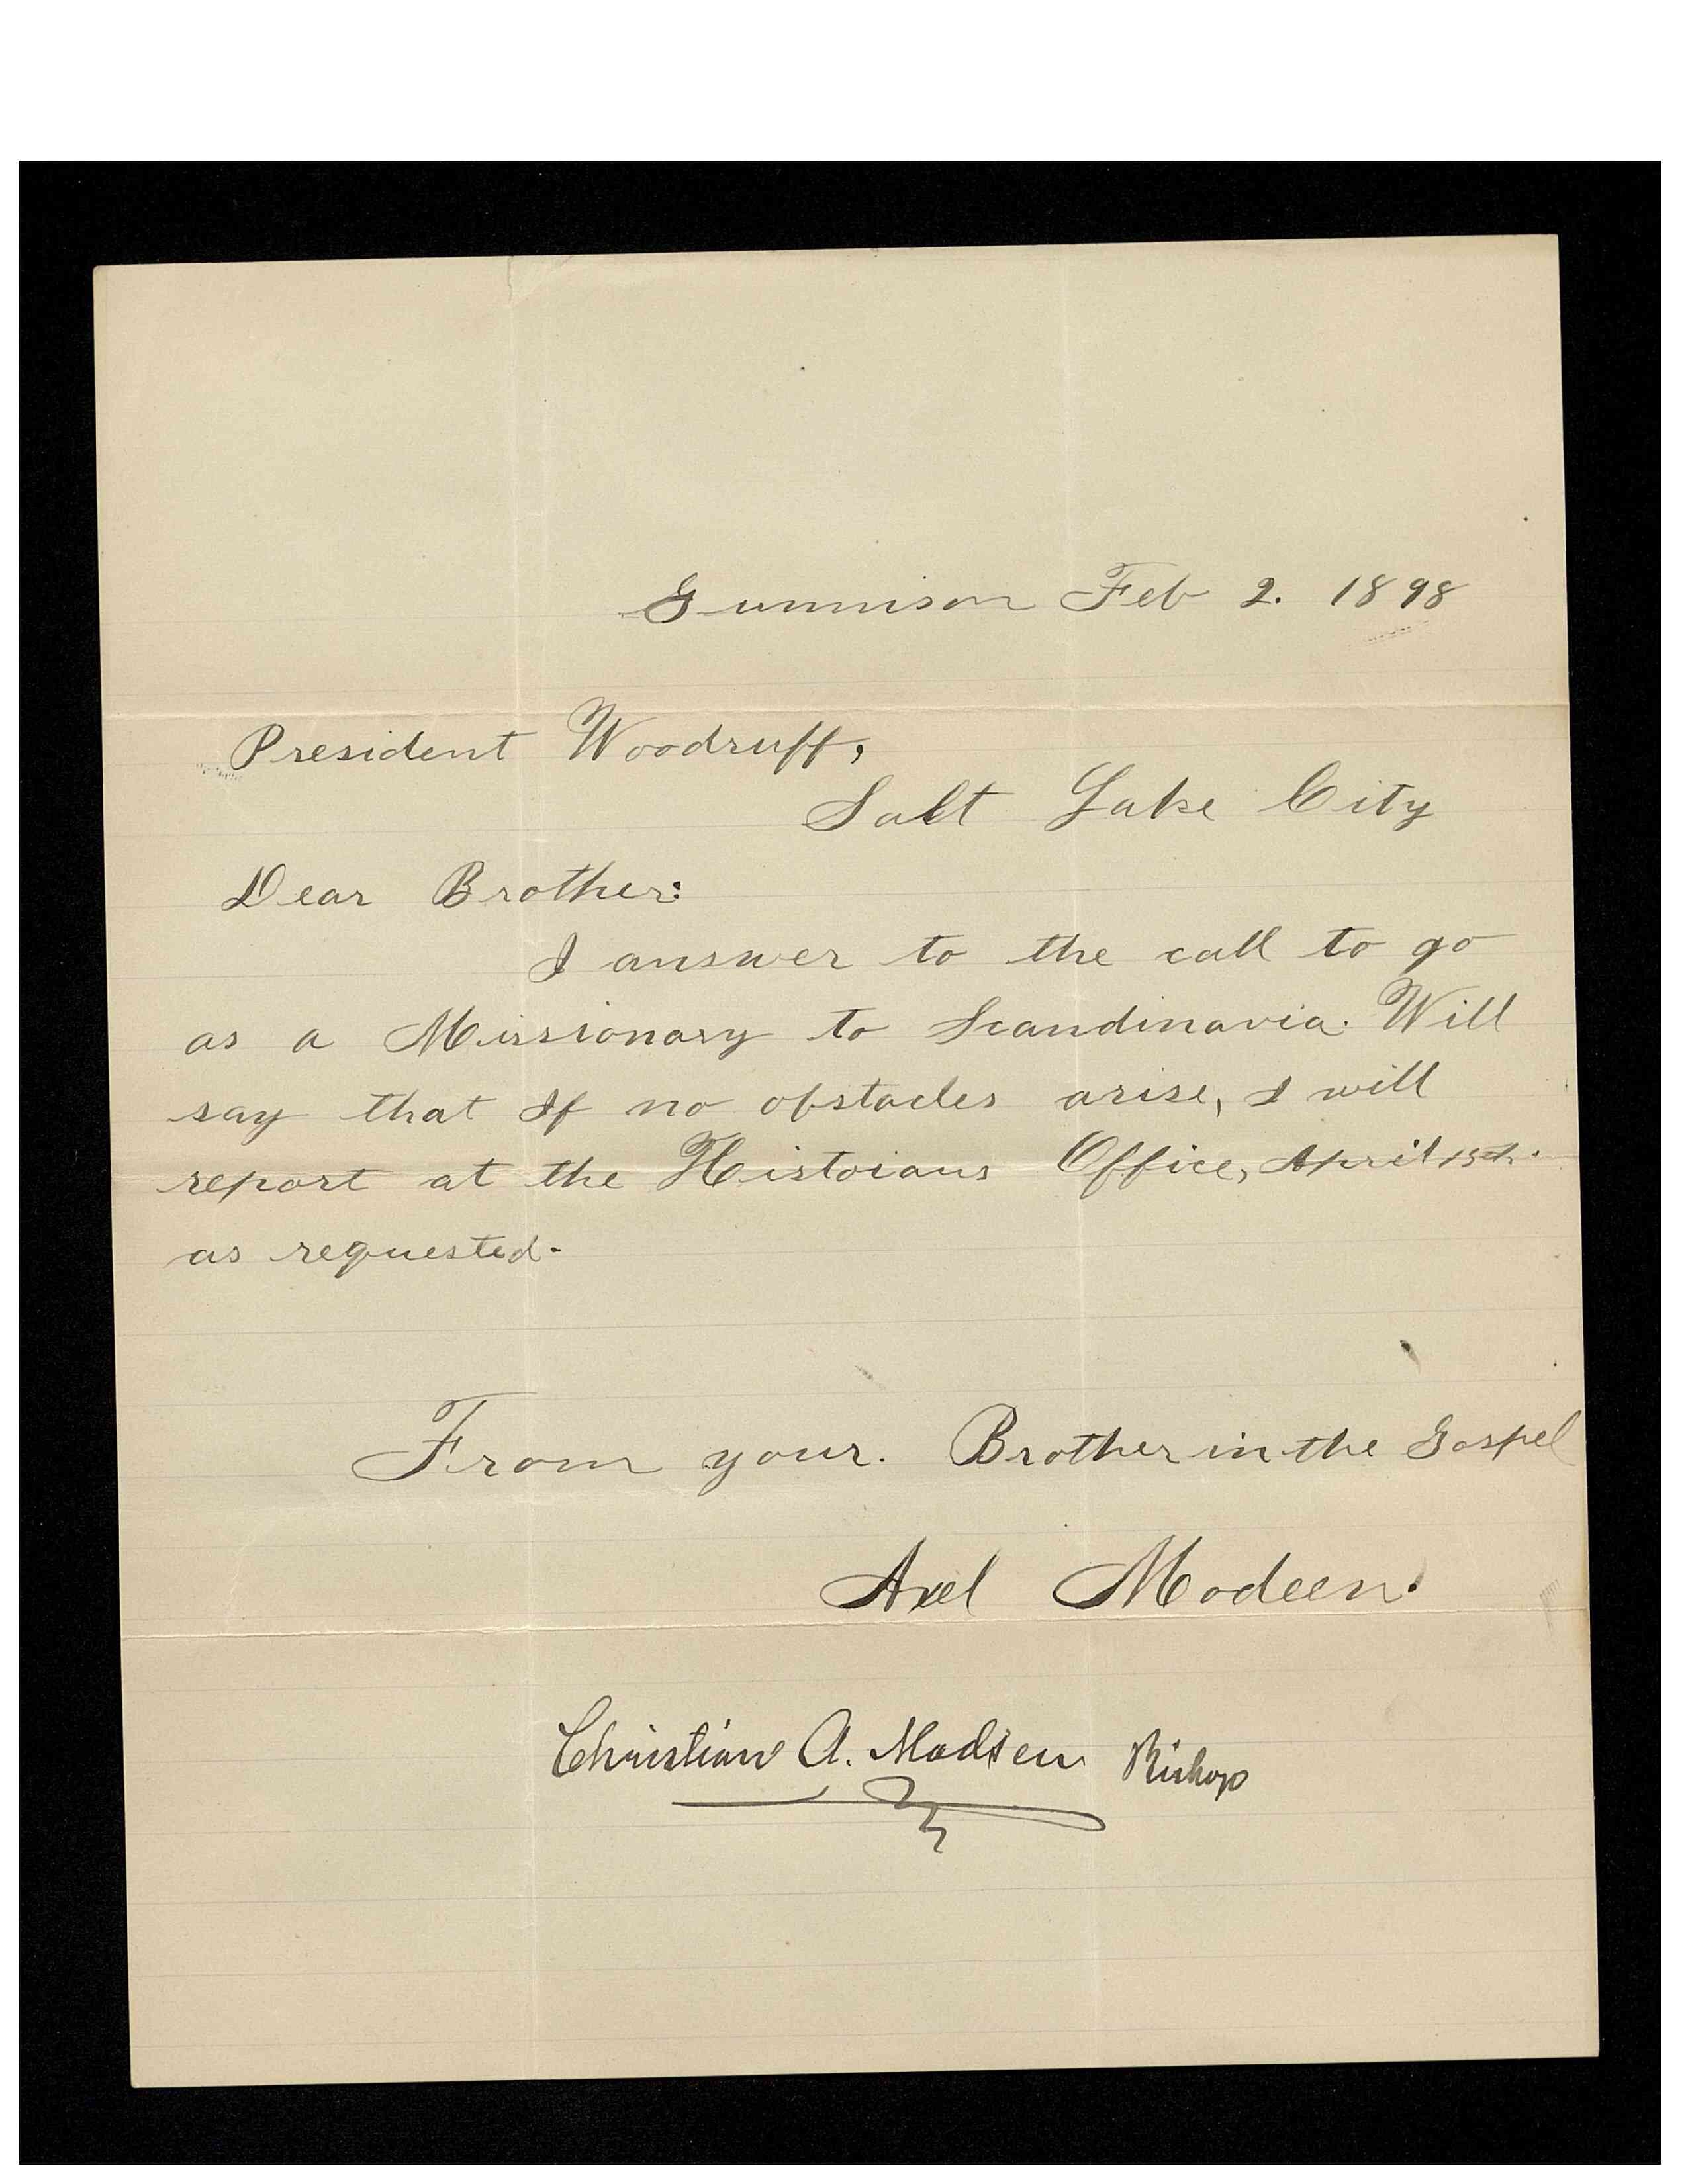 Gunnison Feb 2. 1898
President Woodruff,
Salt Lake City
Dear Brother:
I answer to the call to go
as a Missionary to Scandinavia. Will
say that If no obstacles arise, I will
report at the Histoians Office, April 15th.
as requested.
From your. Brother in the Gospel
Axel Modeen.
Christian A. Madsen Bishop